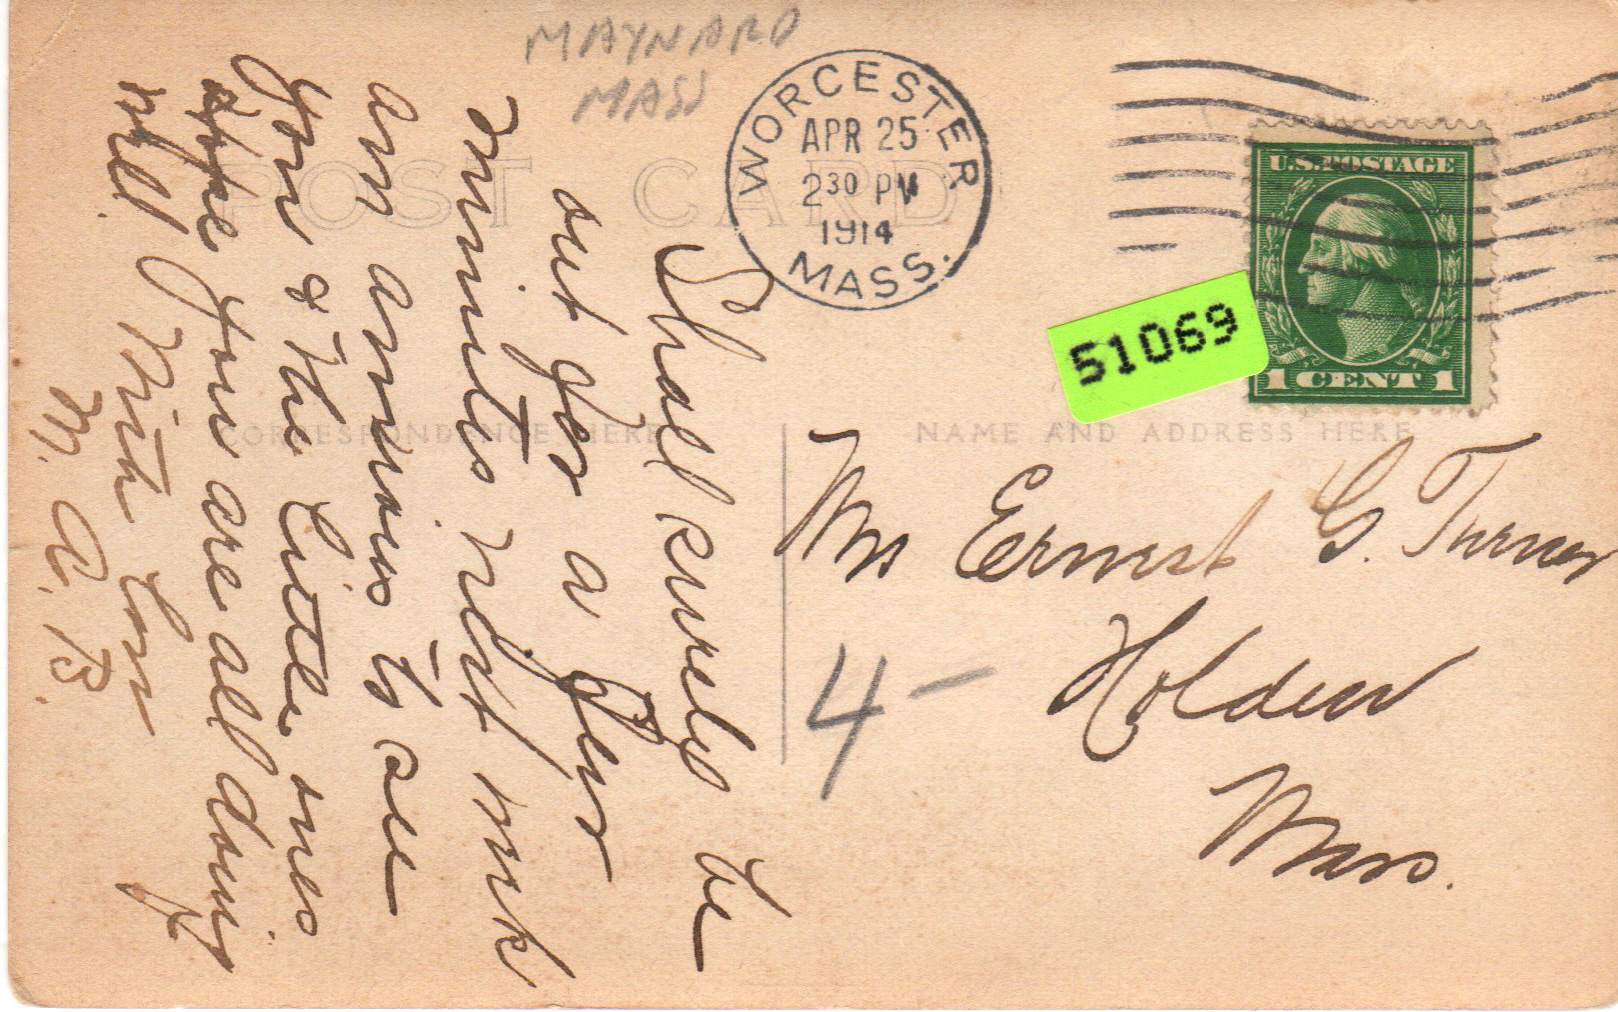 MAYNARD
MASS
WORCESTER
APR 25
2 30 PM
1914
MASS.
U.S. POSTAGE
1 CENT 1
51069
POST CARD
CORRESPONDENCE HERE
NAME AND ADDRESS HERE
Shall surely be
out for a few
minutes next wk
am anxious to see
you & the little ones
hope you are all doing
well With Love
M. A. B.
Mrs Ernest G. Turner
Holden
Mass.
4 -